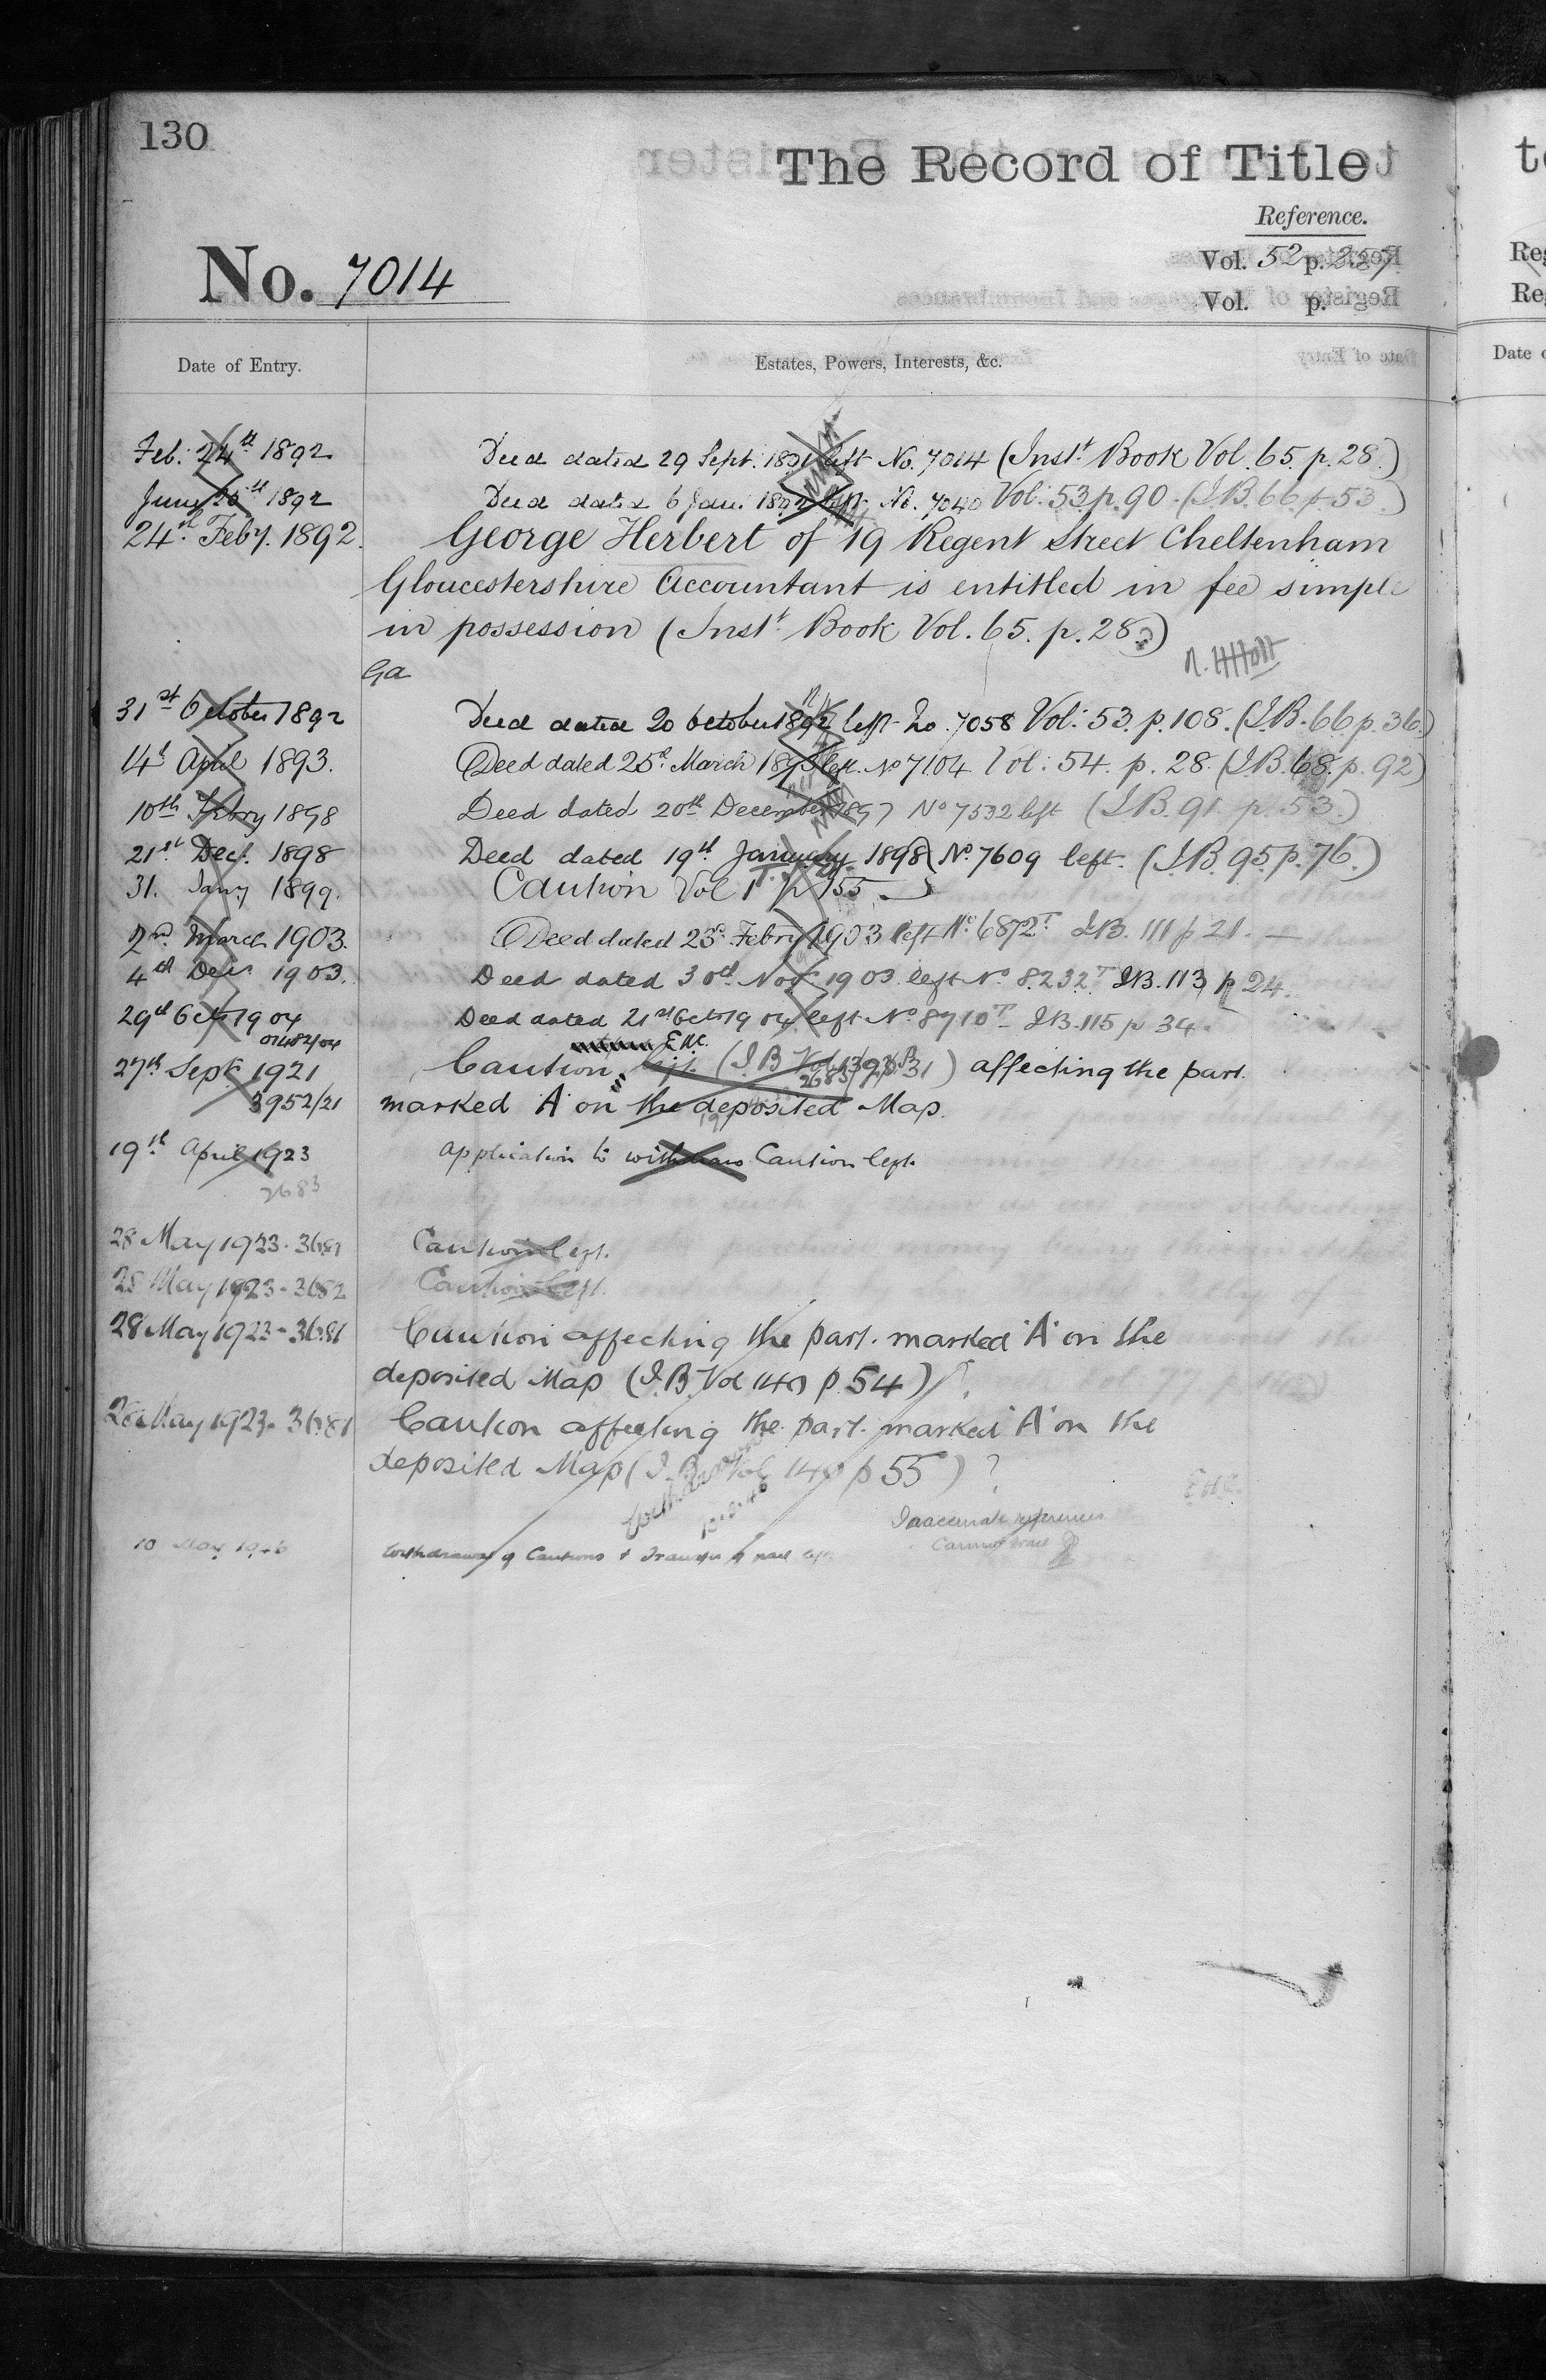 130
The Record of Title
Reference.
Vol. 52 p. 257
No. 7014
Vol. p.
Date of Entry.
Estates, Powers, Interests, &c.
Feb: 24th 1892 Deed dated 29 Sept. 1891 left No. 7014 (Inst. Book Vol. 65. p. 28.)
June 1892 Deed dated 6 Jan. 1892 No. 7040 Vol: 53 p. 90. (I.B. 66. p. 53.)
24th Feby. 1892. George Herbert of 19 Regent Street Cheltenham
Gloucestershire Accountant is entitled in fee simple
in possession (Inst. Book Vol. 65. p. 28.)
31st October 1892 Deed dated 20 October 1892 left No. 7058 Vol: 53. p. 108. (I.B. 66 p. 36.)
14th April 1893. Deed dated 25th March 1893 left. No 7104 Vol: 54. p. 28. (I.B. 68. p. 92)
10th Febry 1898 Deed dated 20th December 1897 No 7532 left (I.B. 91. p. 53.)
21st Decr. 1898 Deed dated 19th January 1898 No. 7609 left. (I.B. 95 p. 76.)
31. Jany 1899. Caution Vol 1 p 155
2nd March 1903. Deed dated 23rd Febry 1903 left No. 6872T I.B. 111 p 21.
4th Decr 1903. Deed dated 30th Novr 1903. left No. 8232T I.B. 113 p 24.
29th Oct 1904 Deed dated 21st Oct 1904 left No 8710T I.B. 115 p 34.
01482/04
27th Sept 1921 Caution left. (I.B Vol 139 p. 31) affecting the part
3952/21 marked 'A' on the deposited Map.
2683/23
19th April 1923 application to withdraw Caution left.
2683
28 May 1923 - 3681 Caution left.
28 May 1923 - 3682 Caution left.
28 May 1923 - 3681 Caution affecting the part marked 'A' on the
deposited Map (I.B. Vol 140 p. 54) ?.
28 May 1923 - 3681 Caution affecting the part marked 'A' on the
deposited Map (I.B. Vol 140 p 55) ?
Withdrawn
Inaccurate references
Cannot trace
10 May 1946 Withdrawal of Cautions & Transfer of part left
to
Reg
Reg
Date o